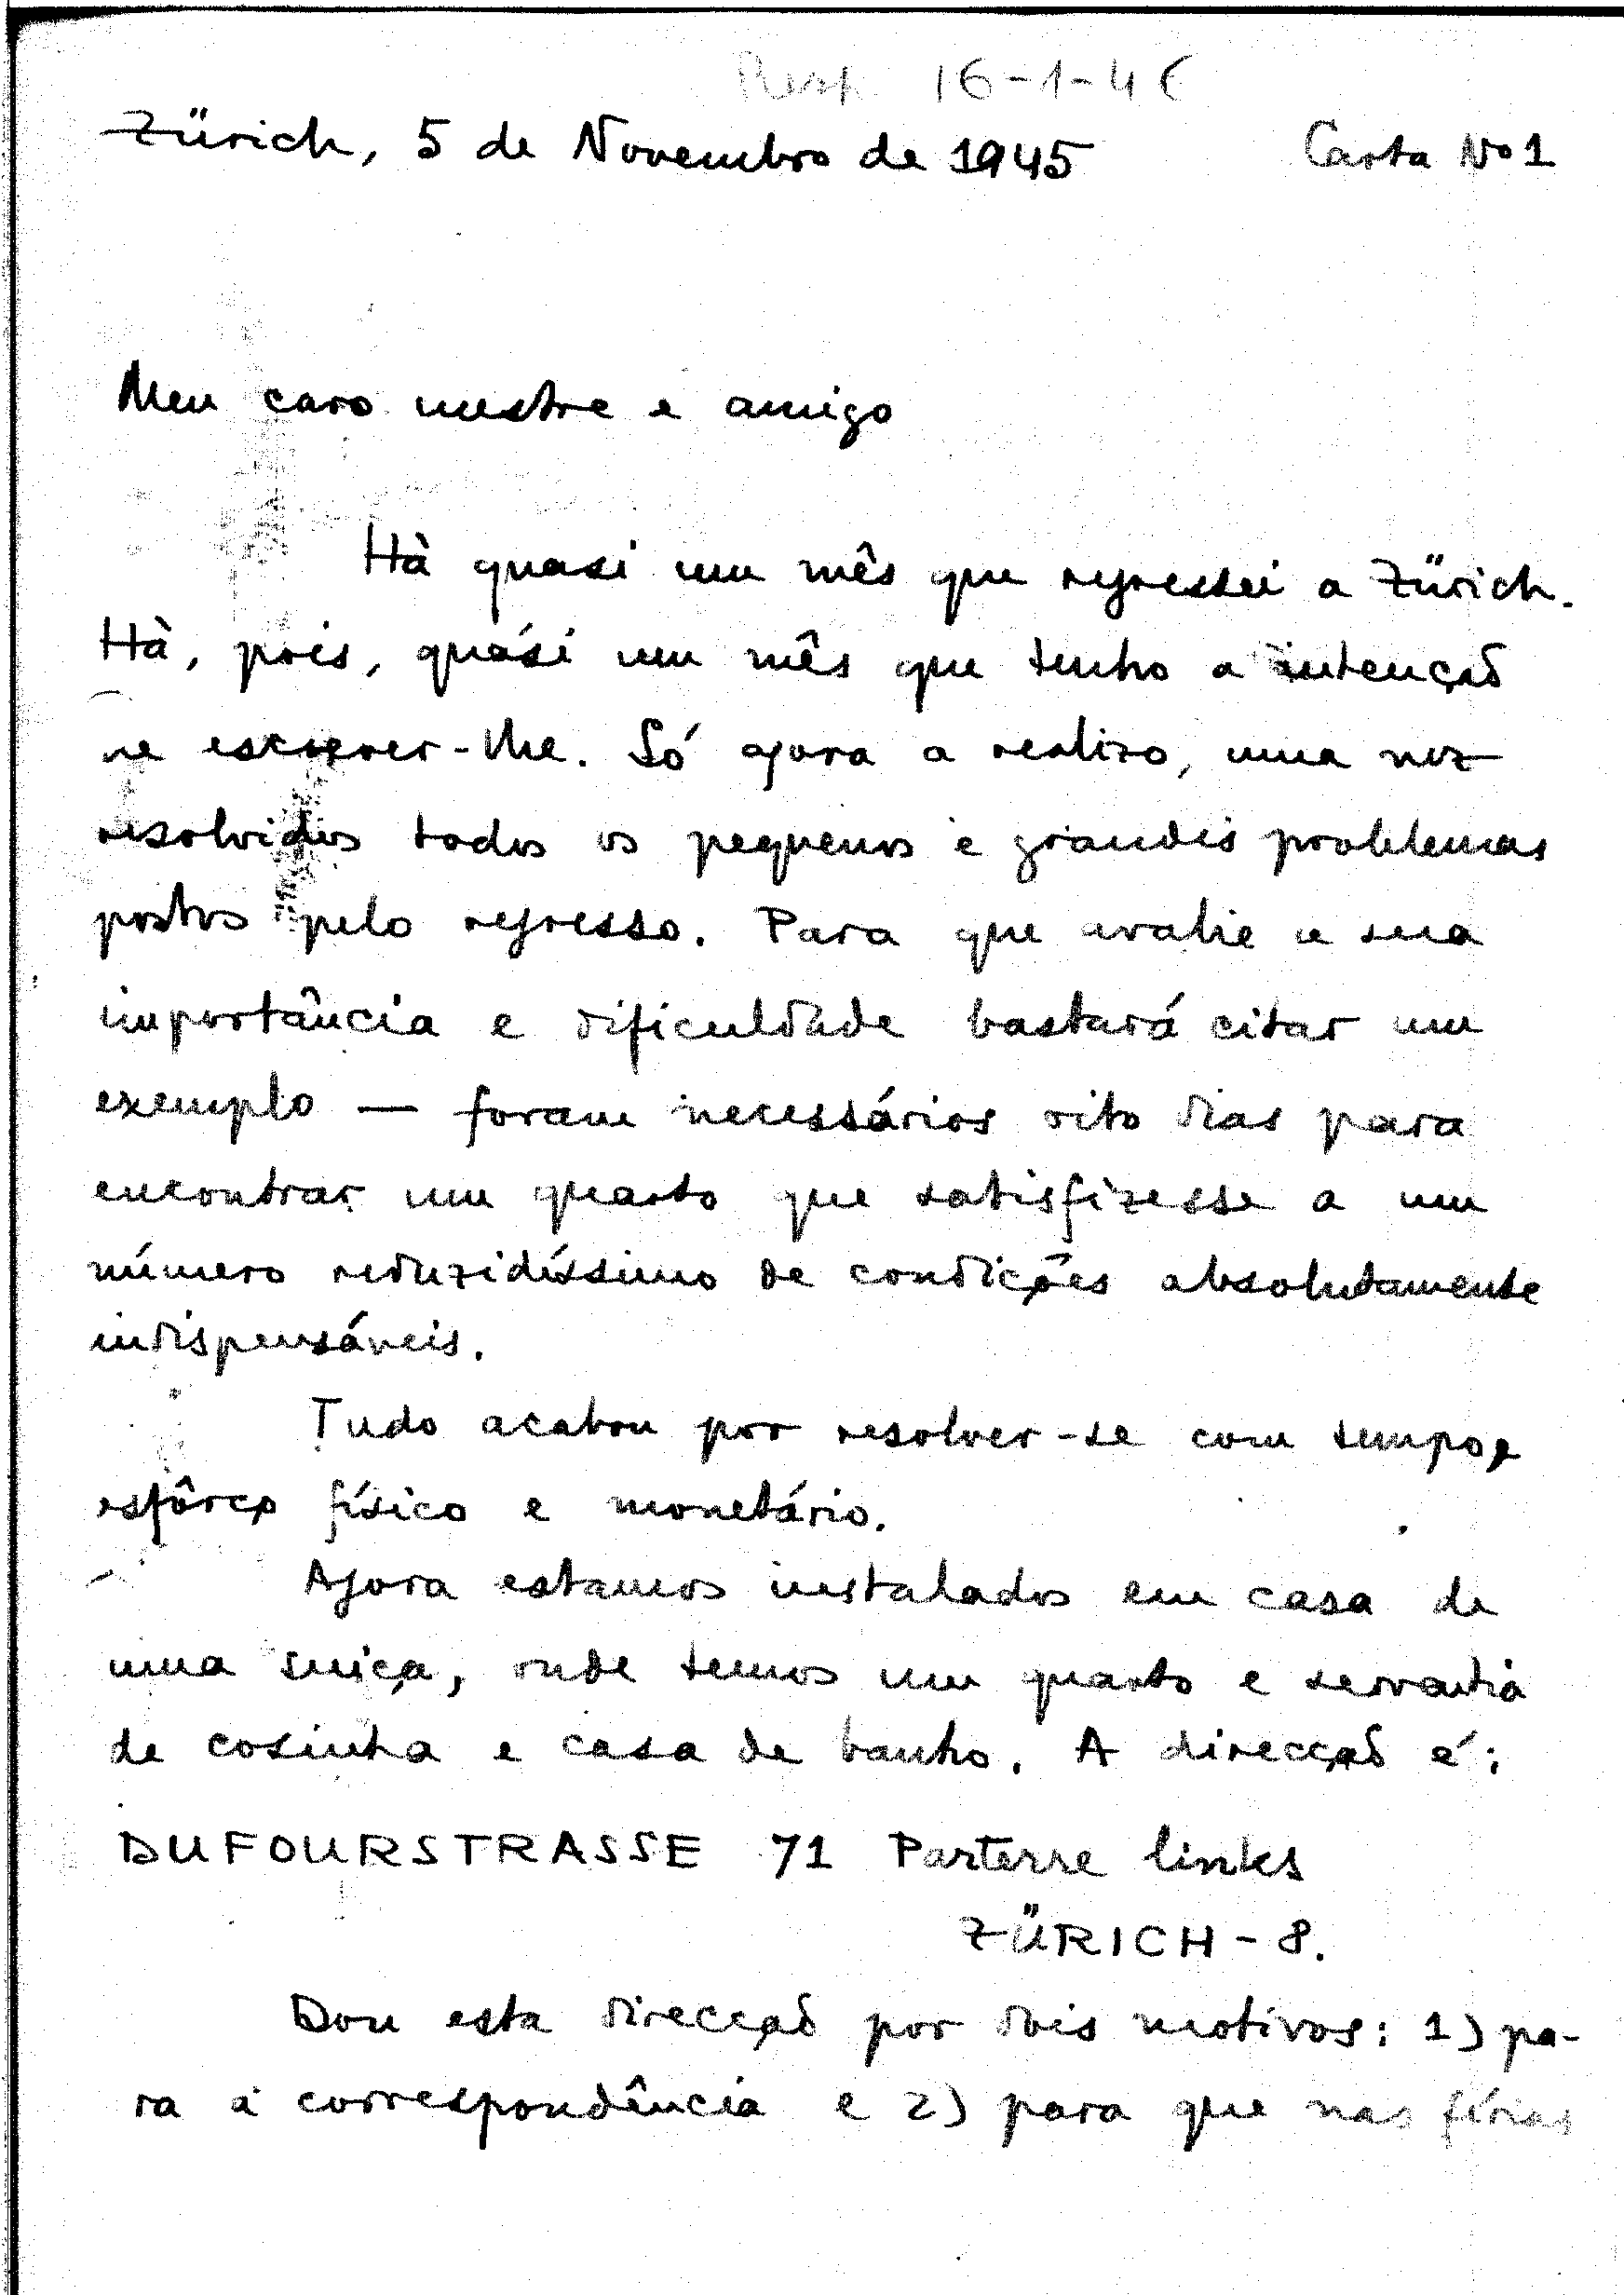 Resp. 16-1-46
Zürich, 5 de Novembro de 1945 Carta Nº 1
Meu caro mestre e amigo
Hà quasi um mês que regressei a Zürich.
Hà, pois, quási um mês que tenho a intenção
de escrever-lhe. Só agora a realizo, uma vez
resolvidos todos os pequenos e grandes problemas
postos pelo regresso. Para que avalie a sua
importância e dificuldade bastará citar um
exemplo — foram necessários oito dias para
encontrar um quarto que satisfizesse a um
número reduzidíssimo de condições absolutamente
indispensáveis.
Tudo acabou por resolver-se com tempo e
esfôrço físico e monetário.
Agora estamos instalados em casa de
uma suiça, onde temos um quarto e serventia
de cosinha e casa de banho. A direcção é:
DUFOURSTRASSE 71 Parterre links
ZÜRICH-8.
Dou esta direcção por dois motivos: 1) pa-
ra a correspondência e 2) para que nas férias